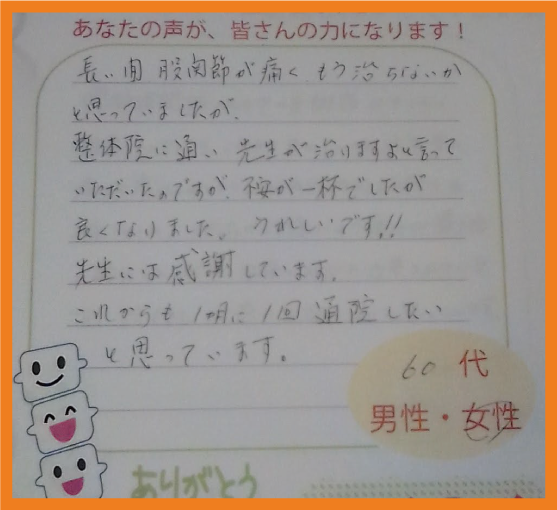 あなたの声が、皆さんの力になります！
長い間 股関節が痛く もう治らないか
と思っていましたが、
整体院に通い 先生が治りますよと言って
いただいたのですが、不安が一杯でしたが
良くなりました。うれしいです!!
先生には感謝しています。
これからも 1ヶ月に 1回 通院したい
と思っています。
60 代
男性・女性
ありがとう